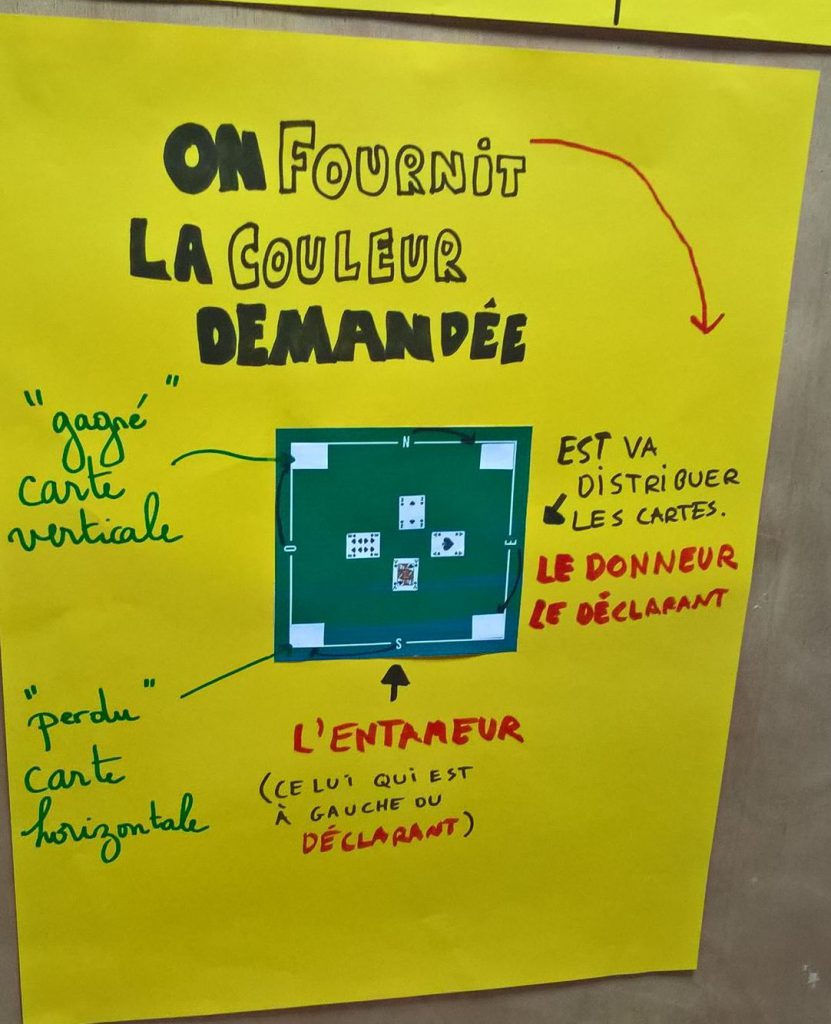 ON FOURNIT
LA COULEUR
DEMANDÉE
"gagné"
carte
verticale
N
O
E
S
EST VA
DISTRIBUER
LES CARTES.
LE DONNEUR
LE DÉCLARANT
"perdu"
carte
horizontale
L'ENTAMEUR
(CELUI QUI EST
À GAUCHE DU
DÉCLARANT)